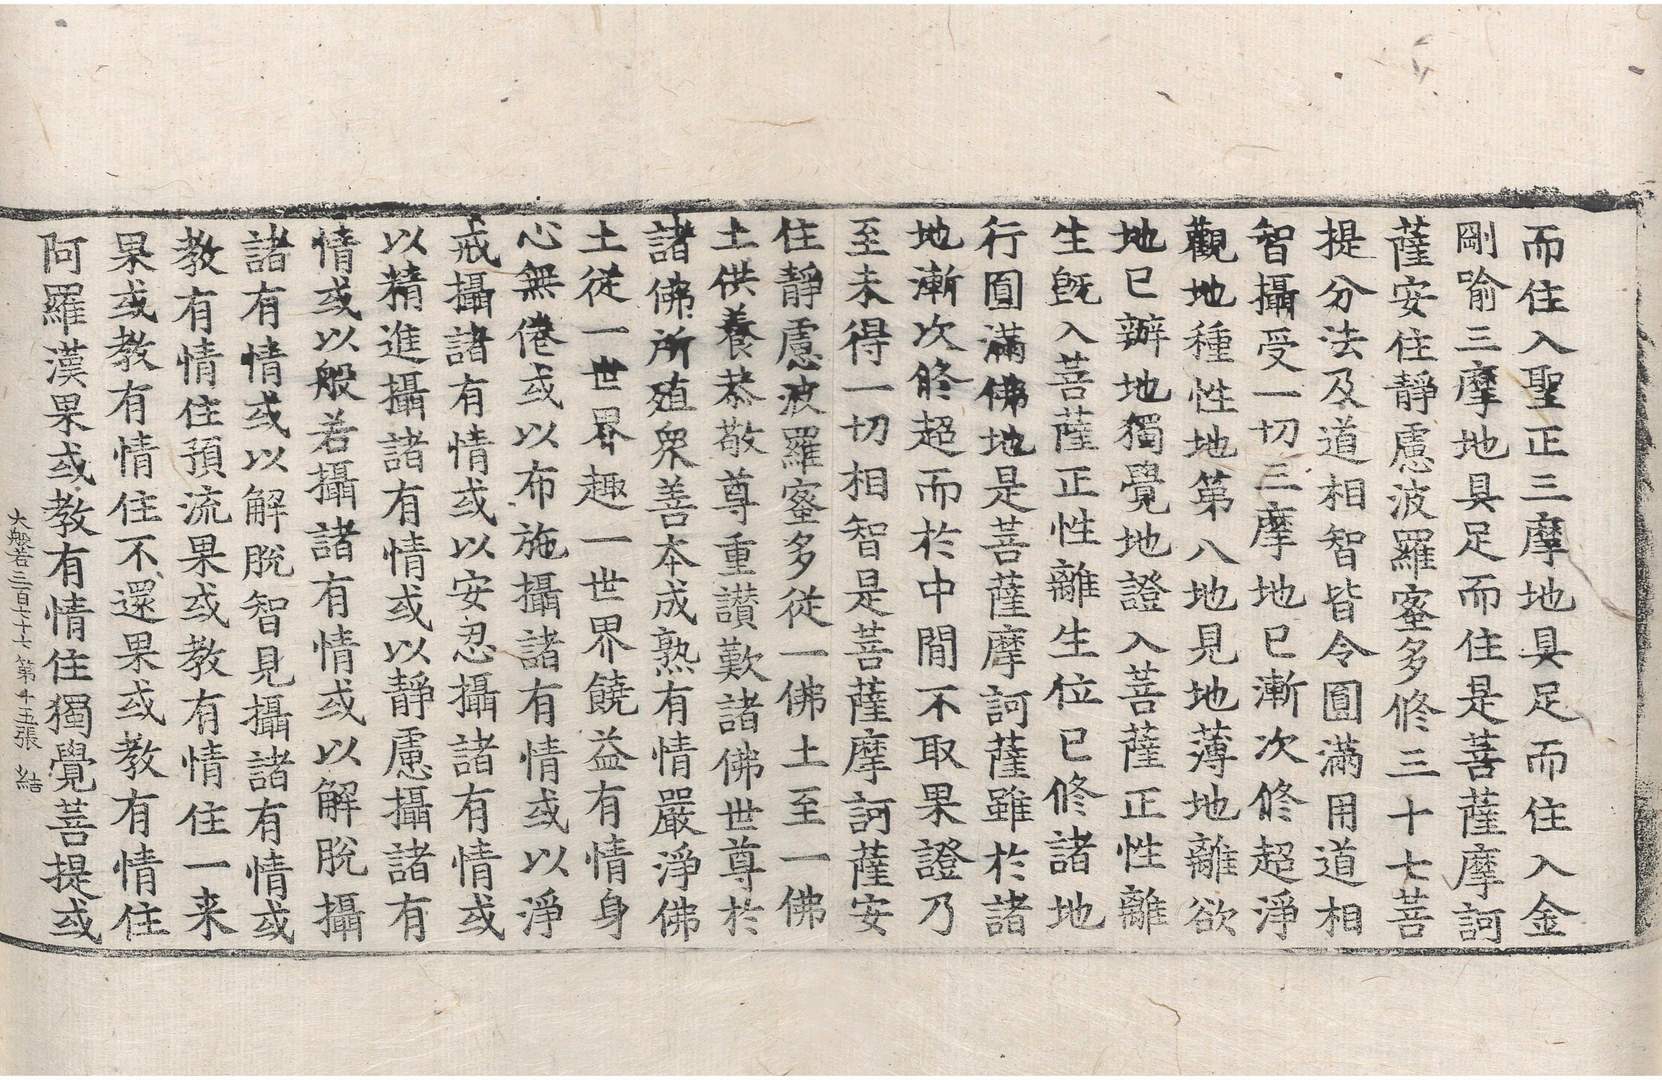 而住入聖正三摩地具足而住入金
剛喻三摩地具足而住是菩薩摩訶
薩安住靜慮波羅蜜多修三十七菩
提分法及道相智皆令圓滿用道相
智攝受一切三摩地已漸次修超淨
觀地種性地第八地見地薄地離欲
地已辦地獨覺地證入菩薩正性離
生旣入菩薩正性離生位已修諸地
行圓滿佛地是菩薩摩訶薩雖於諸
地漸次修超而於中閒不取果證乃
至未得一切相智是菩薩摩訶薩安
住靜慮波羅蜜多從一佛土至一佛
土供養恭敬尊重讃歎諸佛世尊於
諸佛所殖衆善本成熟有情嚴淨佛
土從一世界趣一世界饒益有情身
心無倦或以布施攝諸有情或以淨
戒攝諸有情或以安忍攝諸有情或
以精進攝諸有情或以靜慮攝諸有
情或以般若攝諸有情或以解脫攝
諸有情或以解脫智見攝諸有情或
教有情住預流果或教有情住一来
果或教有情住不還果或教有情住
阿羅漢果或教有情住獨覺菩提或
大般若三百七十七 第十五張 結